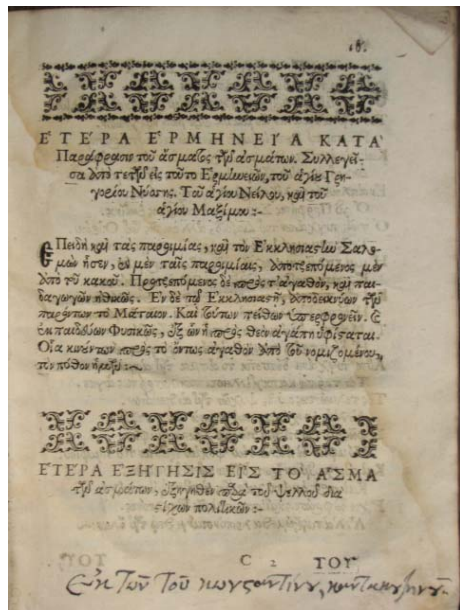 ΕΤΕΡΑ ΕΡΜΗΝΕΙΑ ΚΑΤΑ
Παράφρασιν τοῦ ᾄσματος τῶν ᾀσμάτων. Συλλεγεῖ-
σα ἀπὸ τε τῶν εἰς τοῦτο Ἑρμηνειῶν, τοῦ ἁγίου Γρη-
γορίου Νύσης. Τοῦ ἁγίου Νείλου, καὶ τοῦ
ἁγίου Μαξίμου :-
ΕΠειδὴ καὶ ταῖς παροιμίαις, καὶ τὸν Ἐκκλησιαστὴν Σαλο-
μὼν ἦσεν, ἐν μὲν ταῖς παροιμίαις, ἀποτρεπόμενος μὲν
ἀπὸ τοῦ κακοῦ. Προτρεπόμενος δὲ πρὸς τ' ἀγαθὸν, καὶ παι-
δαγωγῶν ἠθικῶς. Ἐν δὲ τῷ Ἐκκλησιαστῇ, ἀποδεικνύων τῶν
παρόντων τὸ Μάταιον. Καὶ τούτων πείθων ὑπερφρονεῖν.
παιδεύων Φυσικῶς, ἐξ ὧν ἡ πρὸς θεὸν ἀγάπη ὑφίσταται.
Οἷα κινούντων πρὸς τὸ ὄντως ἀγαθὸν ἀπὸ τοῦ νομιζομένου,
τὸν πόθον
ΕΤΕΡΑ ΕΞΗΓΗΣΙΣ ΕΙΣ ΤΟ ΑΣΜΑ
τῶν ᾀσμάτων, ἐξηγηθὲν παρὰ τοῦ Ψελλοῦ διὰ
στίχων πολιτικῶν :-
C 2 ΤΟΥ
Ἐκ τῶν τοῦ κωνσταντίνου